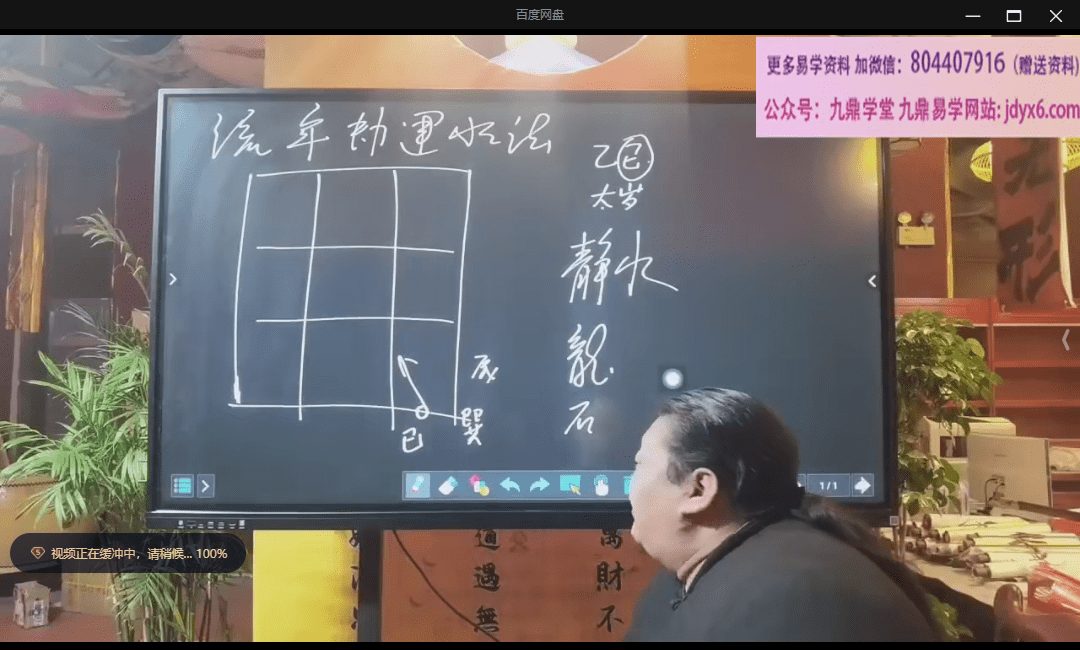 百度网盘
更多易学资料 加微信：804407916（赠送资料)
公众号：九鼎学堂 九鼎易学网站: jdyx6.com
流年劫運水法
乙巳
太岁
靜水
龍
石
辰
巳
巽
1/1
视频正在缓冲中，请稍候... 100%
過
遇
無
萬
財
不
形